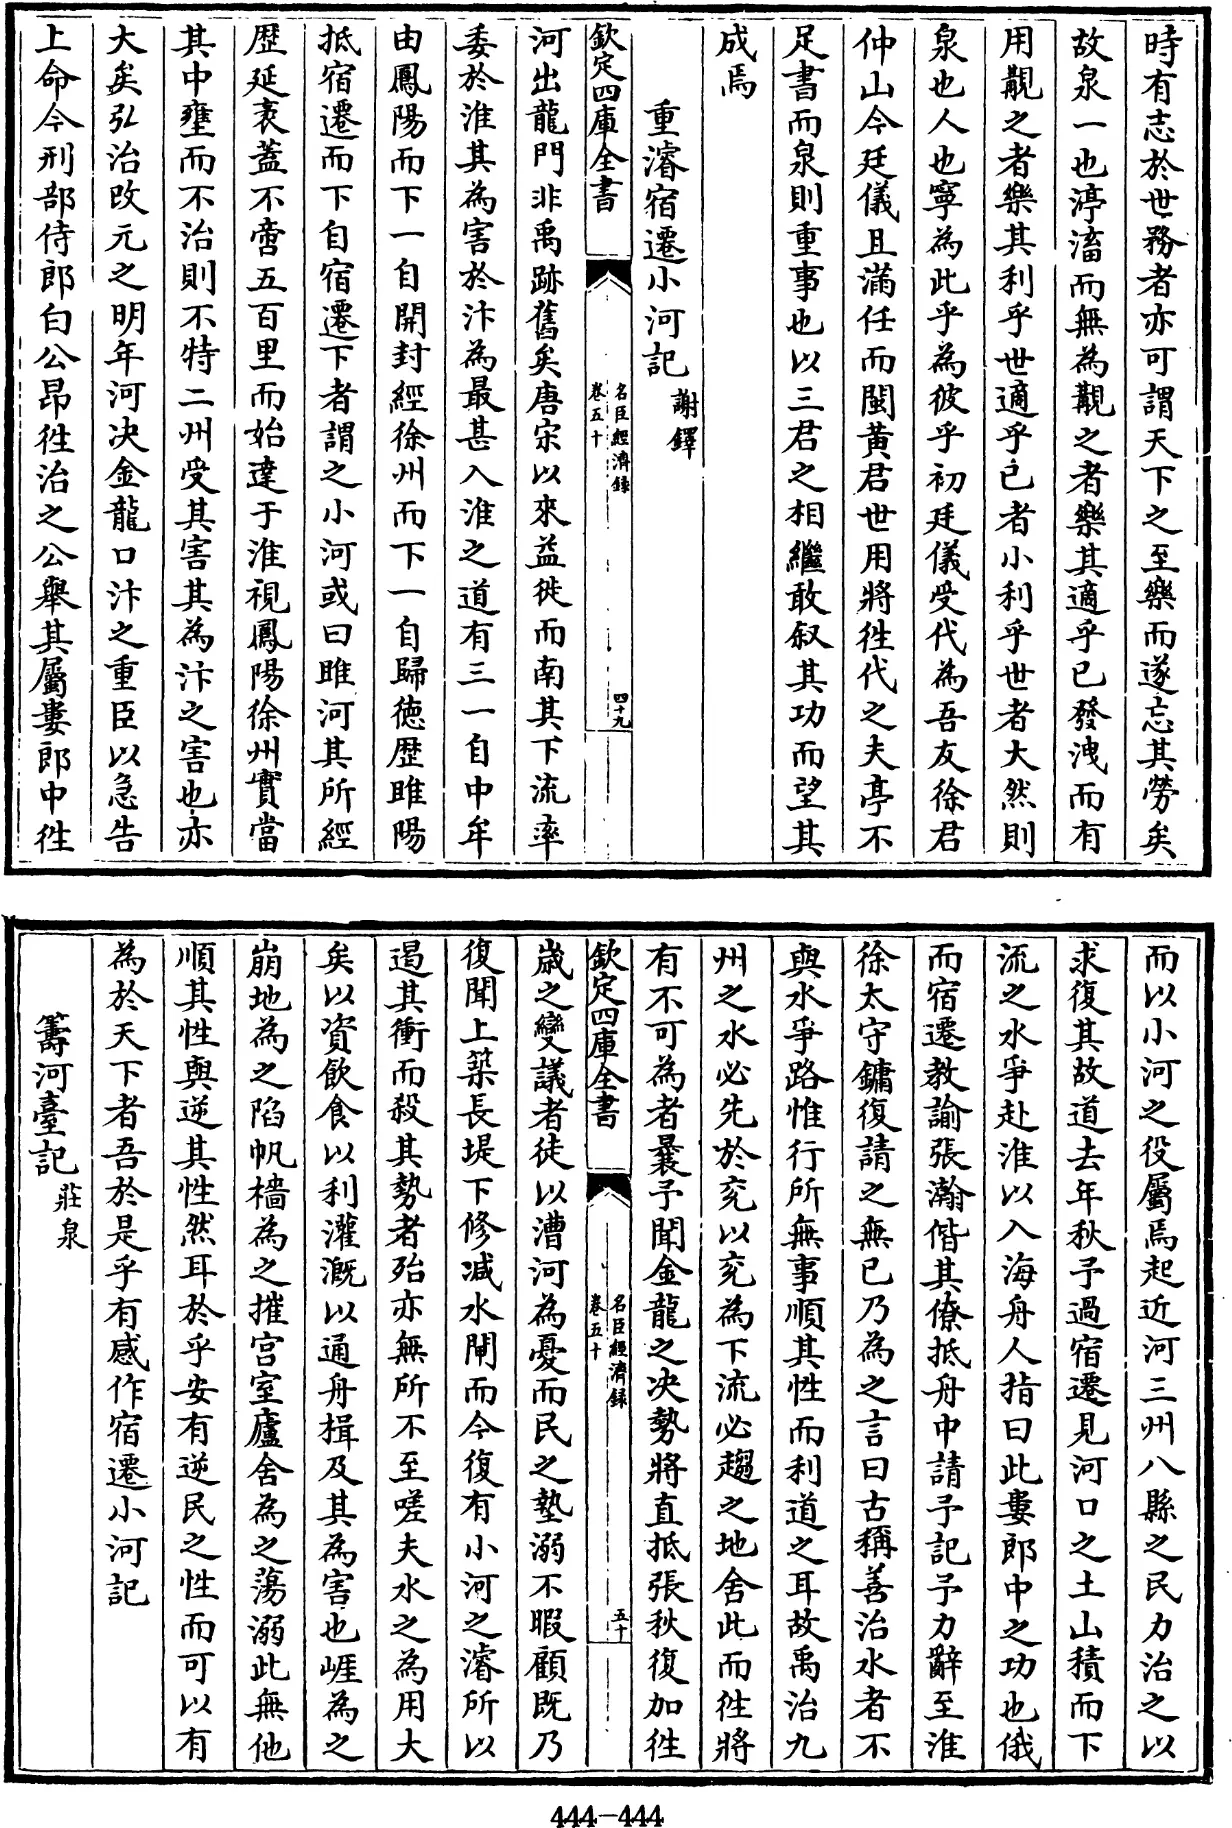 時有志於世務者亦可謂天下之至樂而遂忘其勞矣
故泉一也渟滀而無為觀之者樂其適乎已發洩而有
用觀之者樂其利乎世適乎已者小利乎世者大然則
泉也人也寧為此乎為彼乎初廷儀受代為吾友徐君
仲山今廷儀且滿任而閩黃君世用將徃代之夫亭不
足書而泉則重事也以三君之相繼敢叙其功而望其
成焉
重濬宿遷小河記 謝鐸
欽定四庫全書
名臣經濟錄
卷五十
四十九
河出龍門非禹跡舊矣唐宋以來益徙而南其下流率
委於淮其為害於汴為最甚入淮之道有三一自中牟
由鳳陽而下一自開封經徐州而下一自歸徳歴睢陽
抵宿遷而下自宿遷下者謂之小河或曰睢河其所經
歴延袤葢不啻五百里而始達于淮視鳳陽徐州實當
其中壅而不治則不特二州受其害其為汴之害也亦
大矣弘治改元之明年河决金龍口汴之重臣以急告
上命今刑部侍郎白公昂徃治之公舉其屬婁郎中徃
而以小河之役屬焉起近河三州八縣之民力治之以
求復其故道去年秋予過宿遷見河口之土山積而下
流之水爭赴淮以入海舟人指曰此婁郎中之功也俄
而宿遷教諭張瀚偕其僚抵舟中請予記予力辭至淮
徐太守鏞復請之無已乃為之言曰古稱善治水者不
與水爭路惟行所無事順其性而利道之耳故禹治九
州之水必先於兖以兖為下流必趨之地舍此而徃將
有不可為者曩予聞金龍之决勢將直抵張秋復加徃
欽定四庫全書
名臣經濟錄
卷五十
五十
歳之變議者徒以漕河為憂而民之墊溺不暇顧既乃
復聞上築長堤下修减水閘而今復有小河之濬所以
遏其衝而殺其勢者殆亦無所不至嗟夫水之為用大
矣以資飲食以利灌溉以通舟楫及其為害也崕為之
崩地為之陷帆檣為之摧宫室廬舍為之蕩溺此無他
順其性與逆其性然耳於乎安有逆民之性而可以有
為於天下者吾於是乎有感作宿遷小河記
籌河臺記 莊泉
444-444